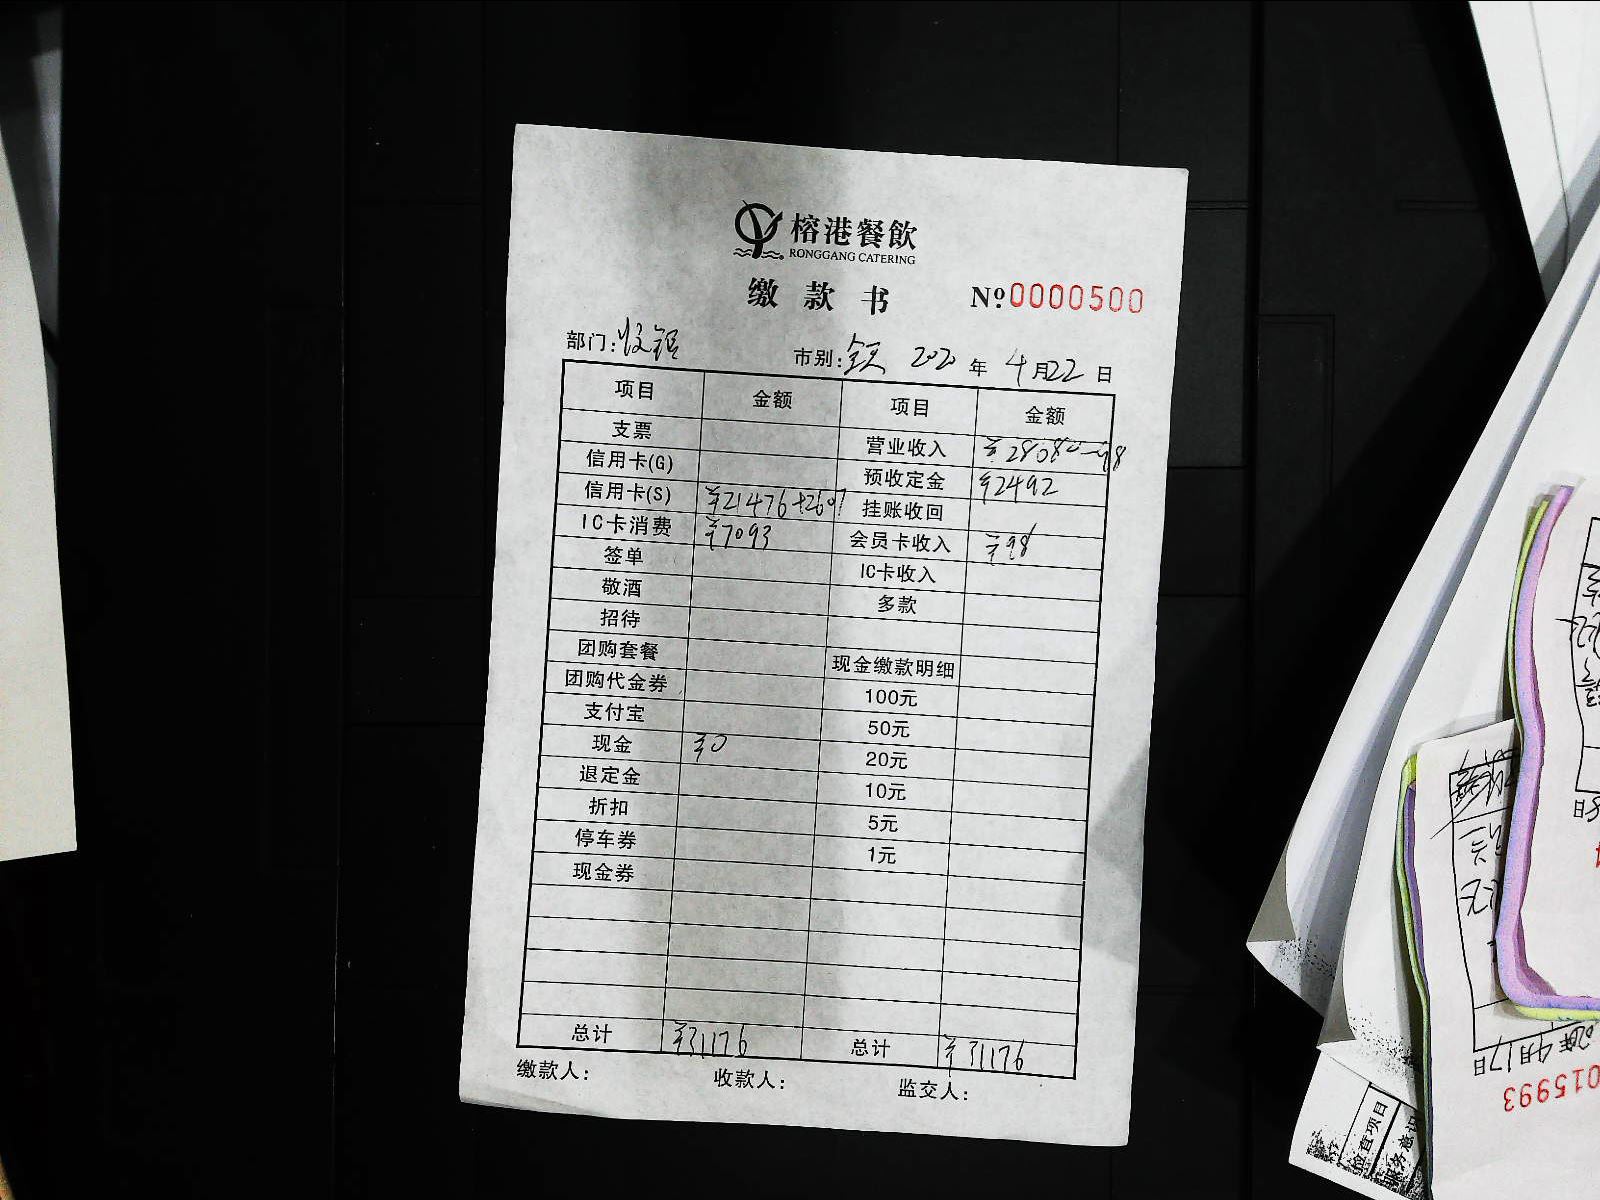 榕港餐飲
RONGGANG CATERING
缴款书 Nº 0000500
部门:收银 市别:全天 2020年4月22日
项目 金额 项目 金额
支票 营业收入 ¥28080-98
信用卡(G) 预收定金 ¥2492
信用卡(S) ¥21476+2607 挂账收回
IC卡消费 ¥7093 会员卡收入 ¥98
签单 IC卡收入
敬酒 多款
招待
团购套餐 现金缴款明细
团购代金券 100元
支付宝 50元
现金 ¥0 20元
退定金 10元
折扣 5元
停车券 1元
现金券
总计 ¥31176 总计 ¥31176
缴款人: 收款人: 监交人:
4月17日
015993
检查项目